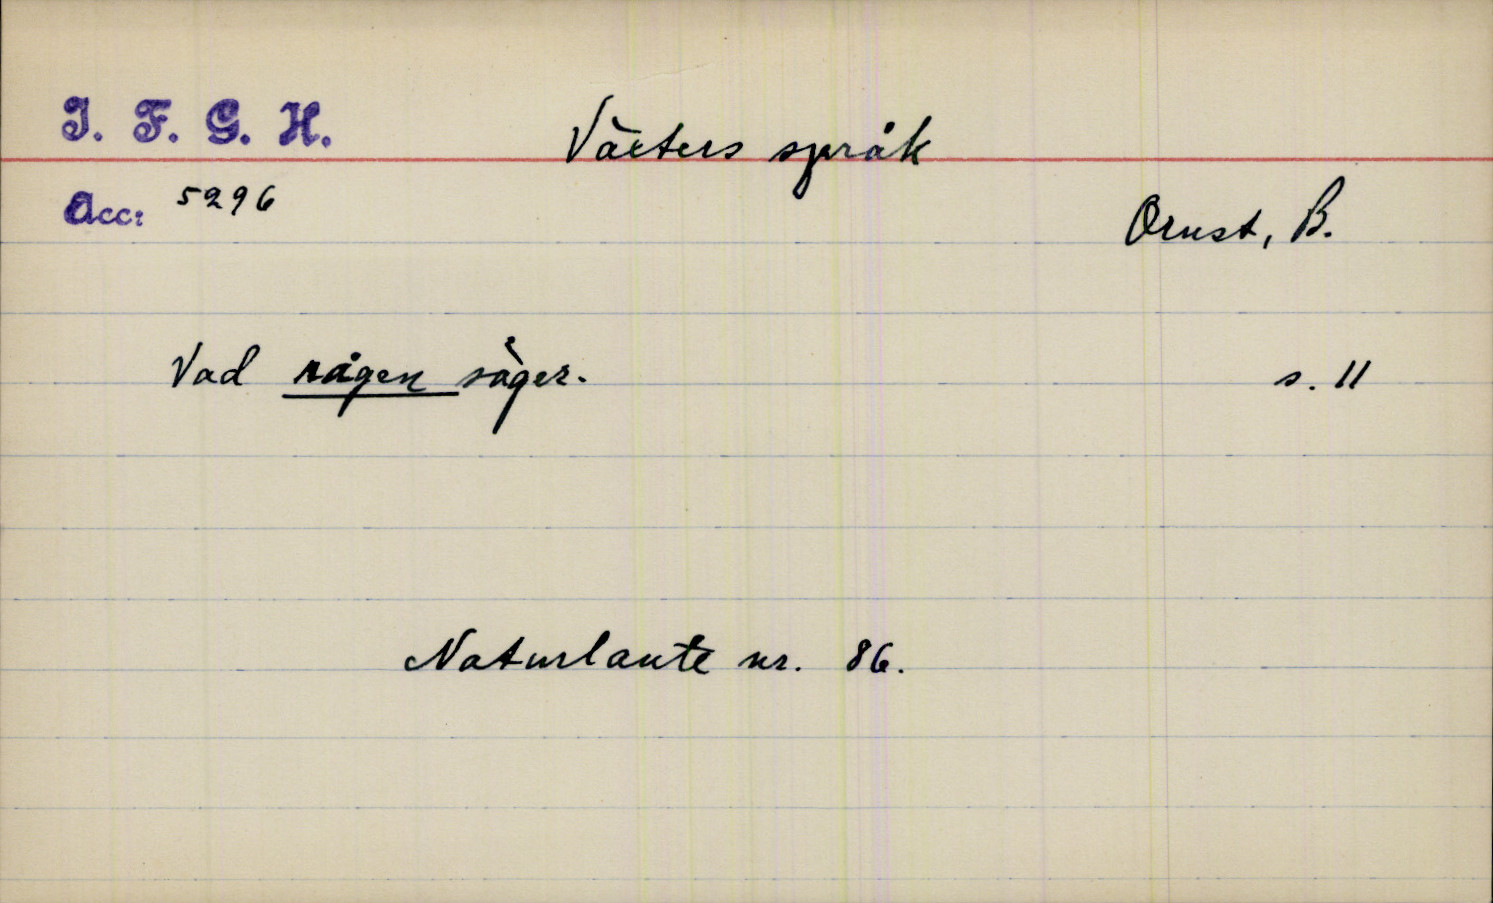 I. F. G. H.
Växters språk
Acc: 5296
Ornst, B.
Vad rågen säger.
s. 11
Naturlaute nr. 86.